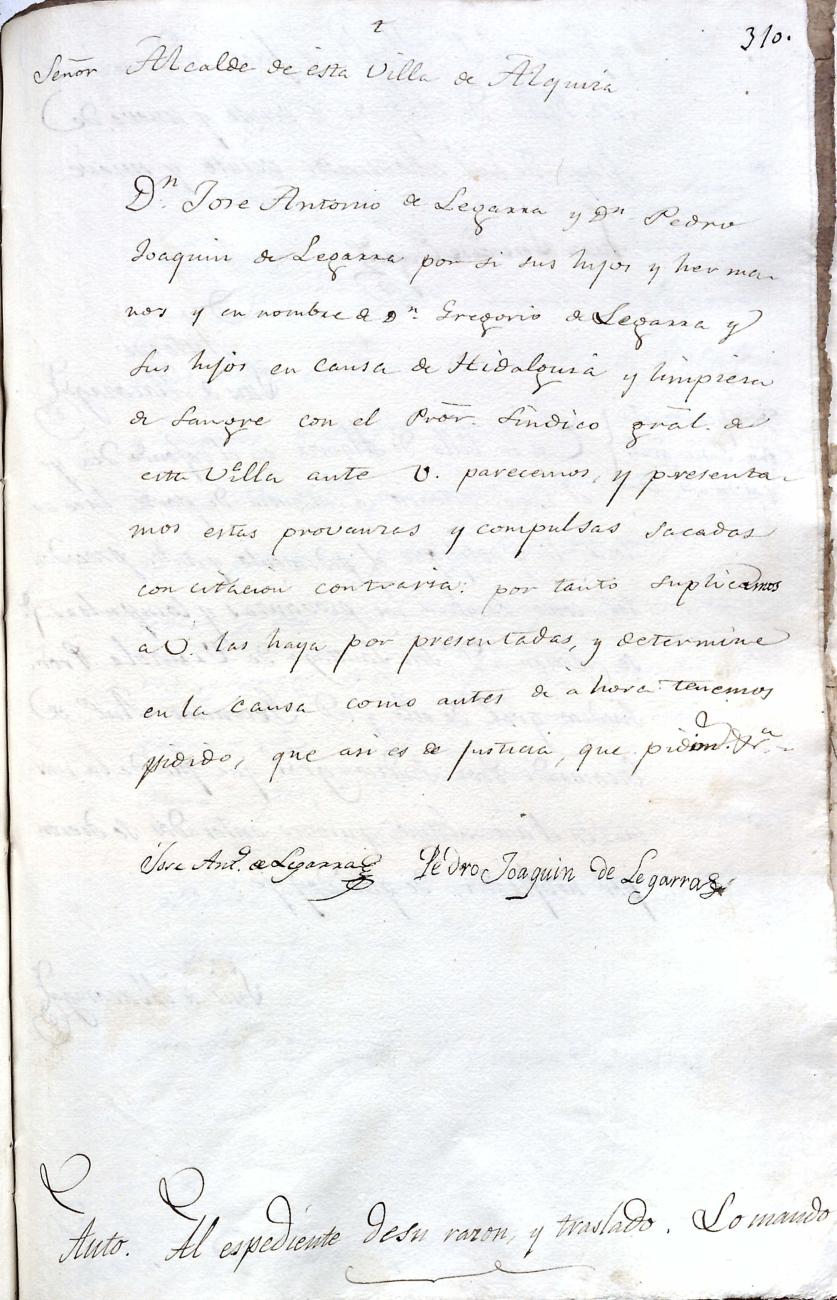 310.
Señor Alcalde de esta Villa de Alquiza
Dn. Jose Antonio de Legarra y Dn. Pedro
Joaquin de Legarra por si sus hijos y herma-
nos y en nombre de Dn. Gregorio de Legarra y
sus hijos en causa de Hidalguia y limpiesa
de sangre con el Pror. Sindico gral. de
esta Villa ante V. parecemos, y presenta-
mos estas provanzas y compulsas sacadas
con citacion contraria: por tanto suplicamos
a V. las haya por presentadas, y determine
en la causa como antes de ahora tenemos
pidido, que asi es de justicia, que pidim.
Jose Anto. de Legarra Pedro Joaquin de Legarra
Auto. Al espediente desu razon, y traslado. Lo mando